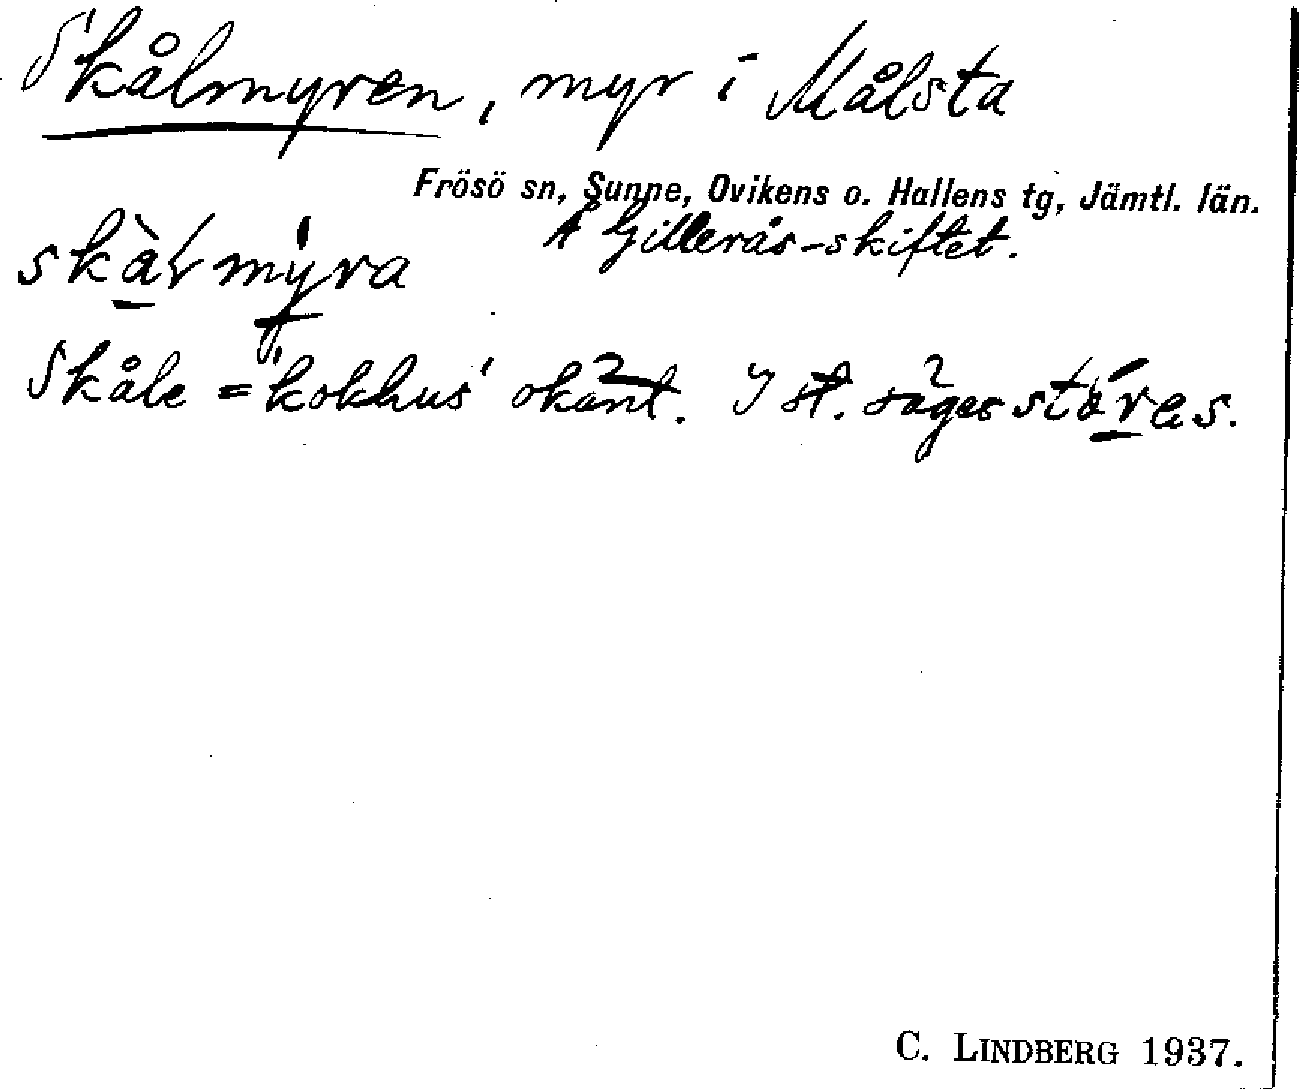 Skålmyren, myr i Målsta
Frösö sn, Sunne, Ovikens o. Hallens tg, Jämtl. län.
Å Gillerås-skiftet.
skàlmyra
Skåle = 'kokhus' okänt. I st. säges
C. LINDBERG 1937.